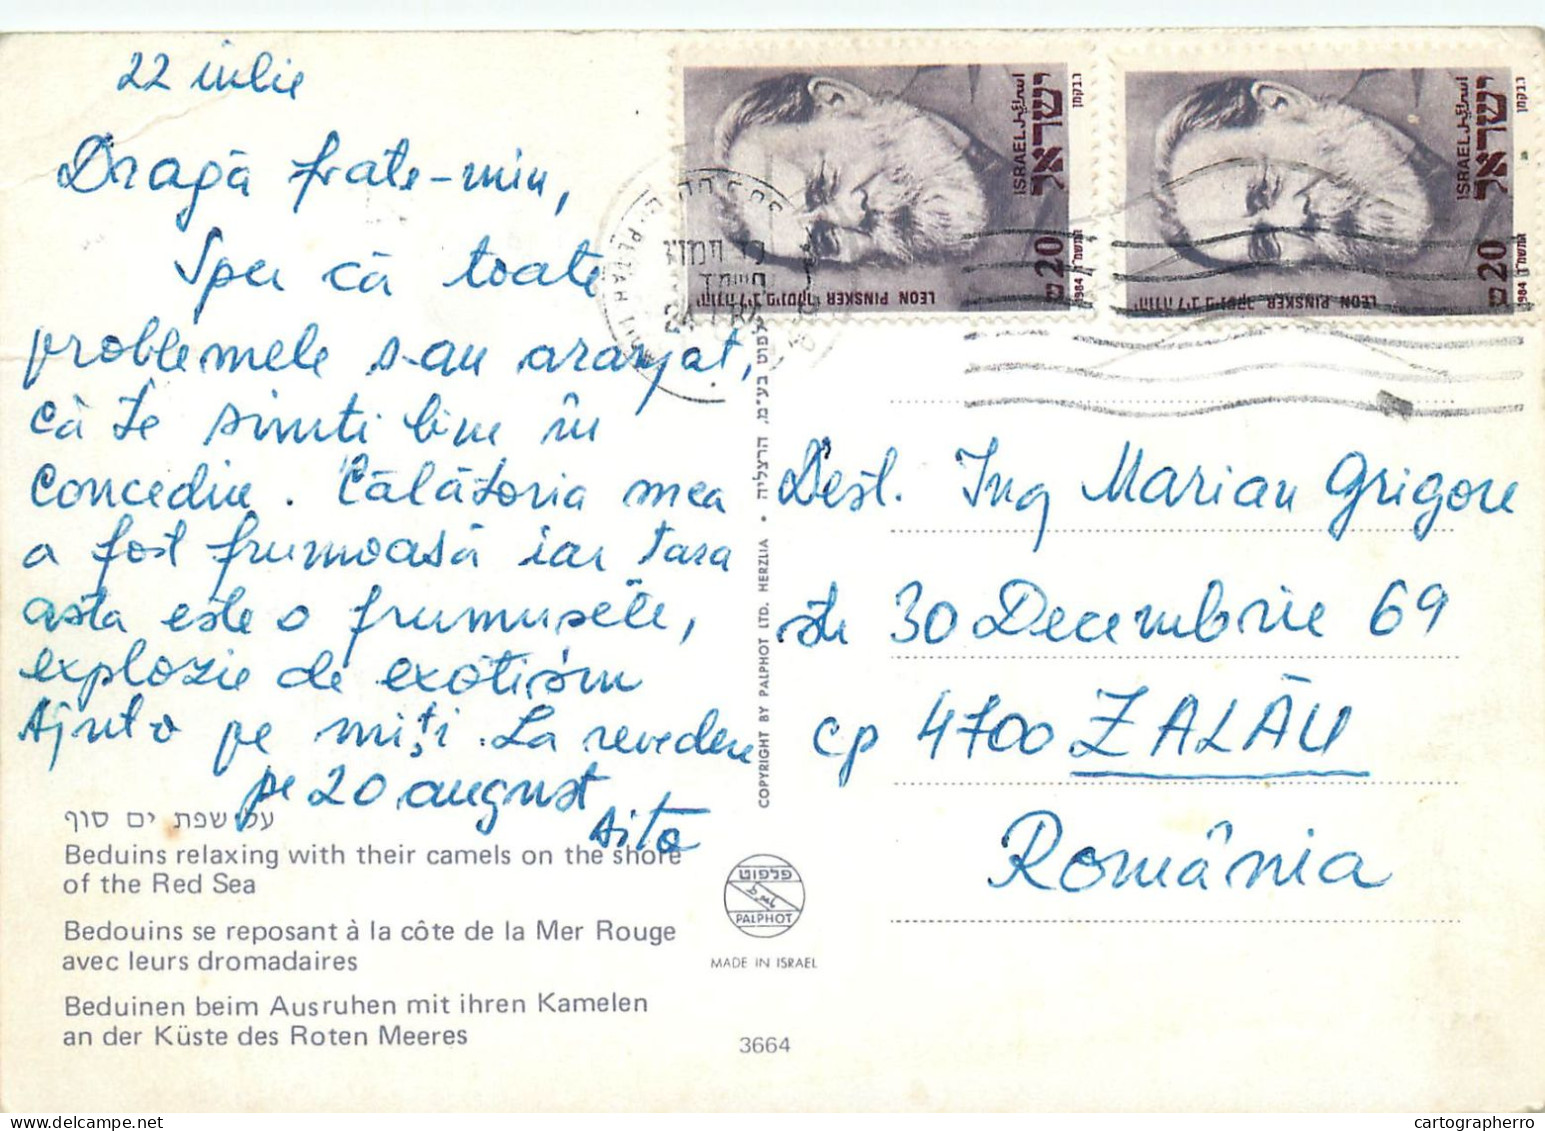 22 iulie
Dragă frate-miu,
Sper că toate
problemele s-au aranjat,
că te simți bine în
concediu. Călătoria mea
a fost frumoasă iar țara
asta este o frumusețe,
explozie de exotism
Ajuto pe miți. La revedere
pe 20 august
עלי שפת ים סוף
Beduins relaxing with their camels on the shore
of the Red Sea
Bedouins se reposant à la côte de la Mer Rouge
avec leurs dromadaires
Beduinen beim Ausruhen mit ihren Kamelen
an der Küste des Roten Meeres
COPYRIGHT BY PALPHOT LTD. HERZLIA • פלפוט בע"מ, הרצליה
פלפוט
PALPHOT
MADE IN ISRAEL
3664
ישראל
اسرائيل
ISRAEL
20
1984 התשמ"ד
LEON PINSKER יהודה ליב פינסקר
רבקמן
ישראל
اسرائيل
ISRAEL
20
1984 התשמ"ד
LEON PINSKER יהודה ליב פינסקר
רבקמן
PETAH
Dest. Ing Marian Grigore
str 30 Decembrie 69
cp 4700 ZALĂU
România
cartographerro